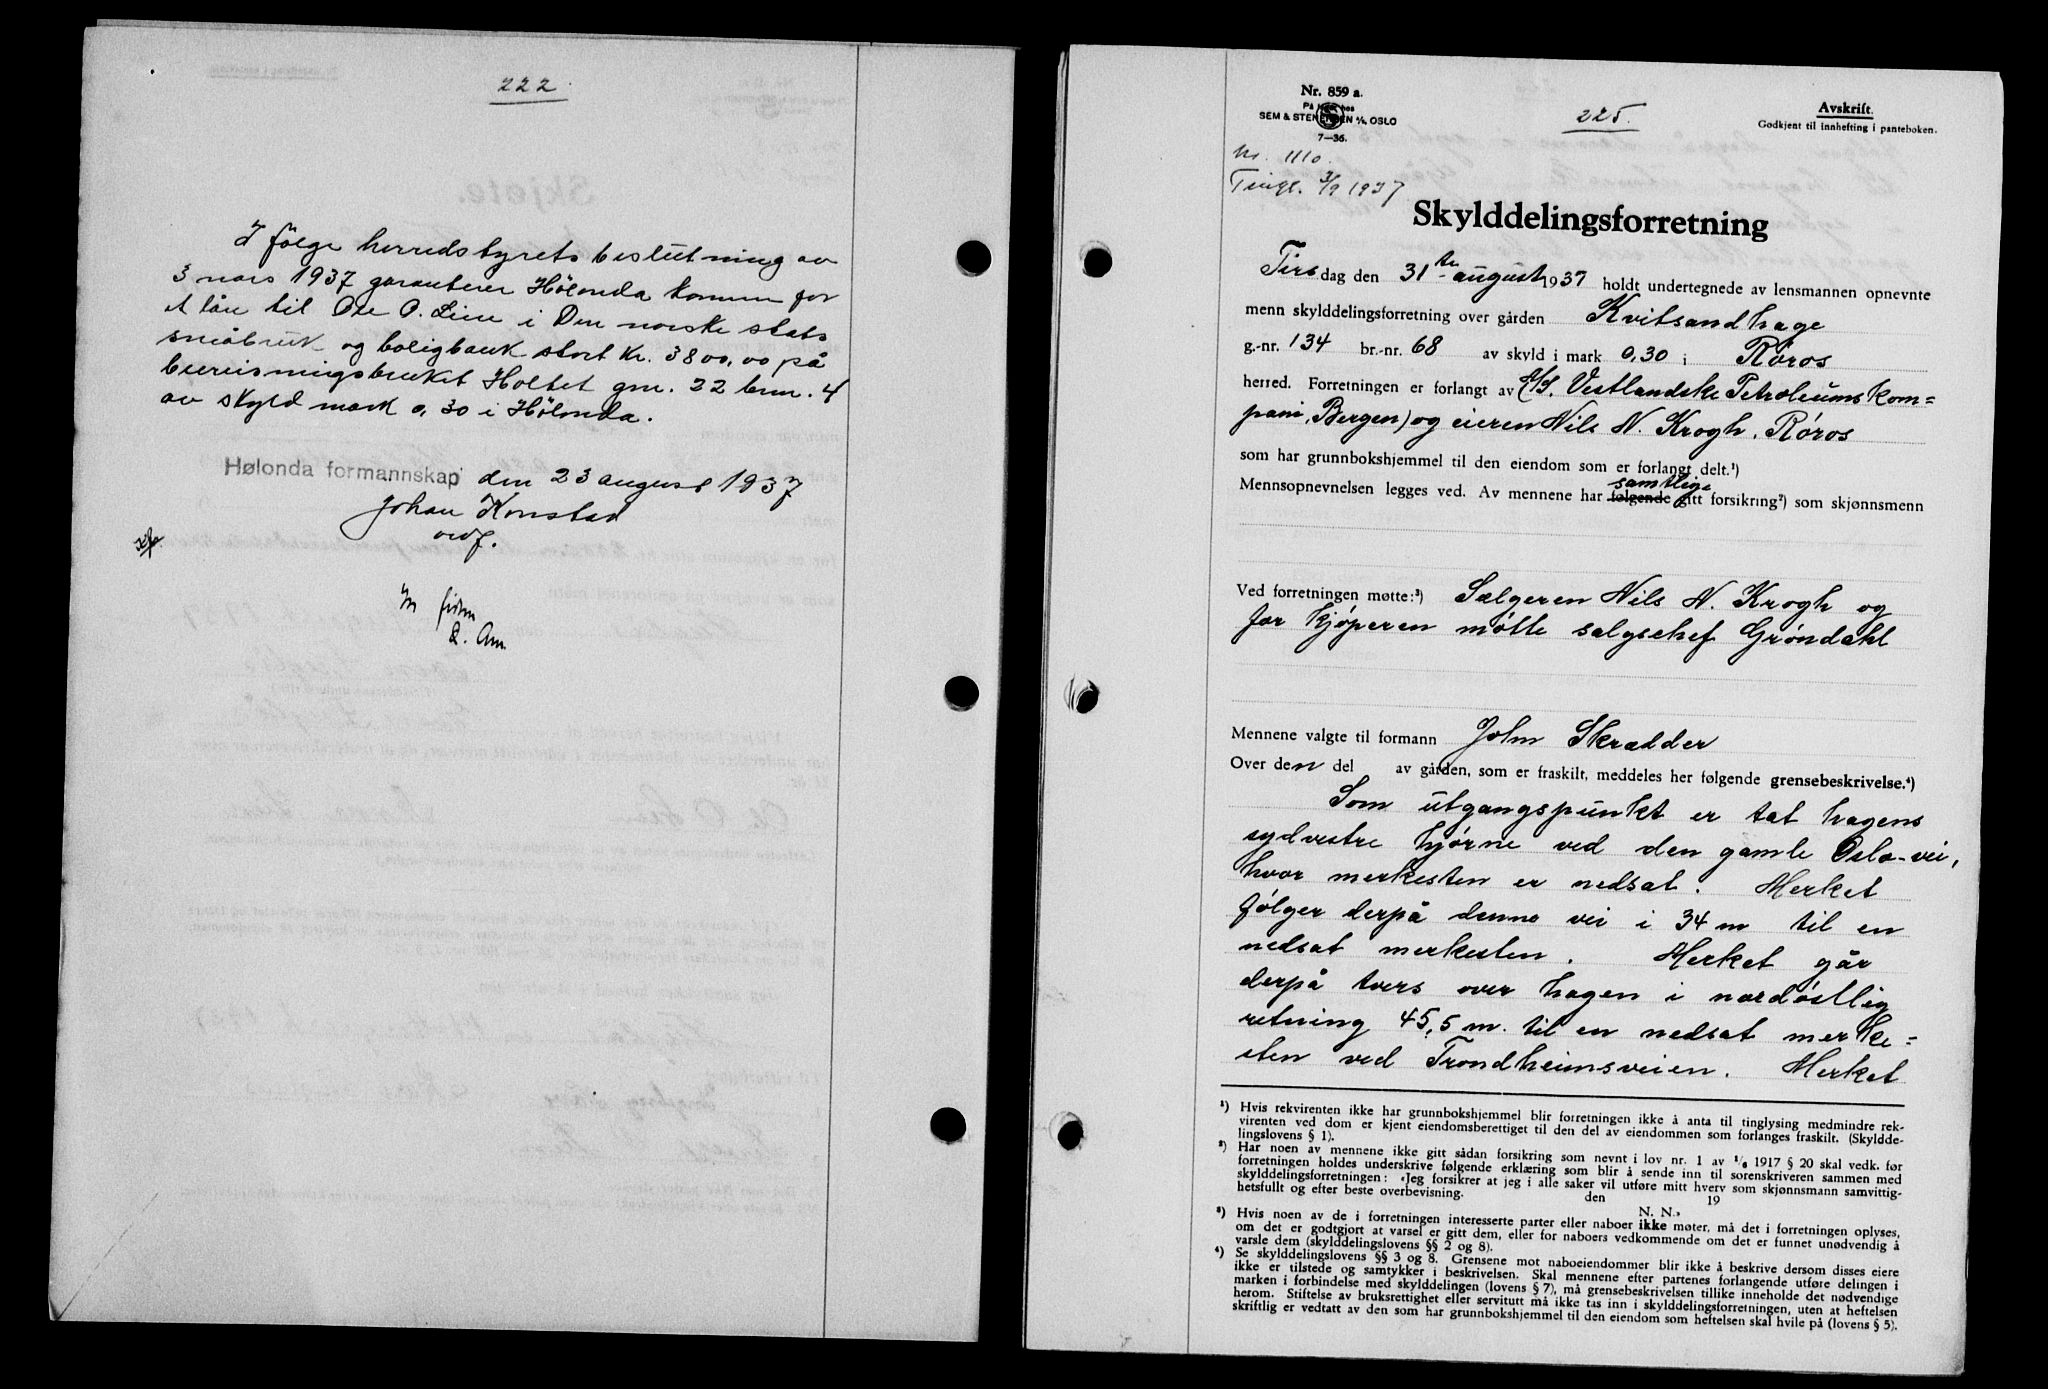 222.
I følge herredstyrets beslutning av
3 mars 1937 garanterer Hølonda komune for
et lån til Ole O. Lien i Den norske stats
småbruk og boligbank stort kr. 3800,00 på
bureisningsbruket Holtet gnr. 22 bnr. 4
av skyld mark 0,30 i Hølonda.
Hølonda formannskap den 23 august 1937
Johan Konstad
ordf.
Nr. 859 a.
På lager hos
SEM & STENERSEN A/S, OSLO
7—36.
225.
Avskrift.
Godkjent til innhefting i panteboken.
Nr. 1110.
Tingl. 3/9 1937
Skylddelingsforretning
Tirsdag den 31te august 1937 holdt undertegnede av lensmannen opnevnte
menn skylddelingsforretning over gården Kvitsandhage
g.-nr. 134 br.-nr. 68 av skyld i mark 0,30 i Røros
herred. Forretningen er forlangt av (A/S. Vestlandske Petroleumskom=
pani, Bergen) og eieren Nils N. Krogh, Røros
som har grunnbokshjemmel til den eiendom som er forlangt delt.¹)
samtlige
Mennsopnevnelsen legges ved. Av mennene har følgende gitt forsikring²) som skjønnsmenn
Ved forretningen møtte:³) Sælgeren Nils N. Krogh og
for kjøperen møtte salgschef Grøndahl
Mennene valgte til formann John Skrædder
Over den del av gården, som er fraskilt, meddeles her følgende grensebeskrivelse.⁴)
Som utgangspunkt er tat hagens
sydvestre hjørne ved den gamle Oslo-vei,
hvor merkesten er nedsat. Merket
følger derpå denne vei i 34 m til en
nedsat merkesten. Merket går
derpå tvers over hagen i nordøstlig
retning 45,5 m. til en nedsat merke=
sten ved Trondheimsveien. Merket
¹) Hvis rekvirenten ikke har grunnbokshjemmel blir forretningen ikke å anta til tinglysing medmindre rek-
virenten ved dom er kjent eiendomsberettiget til den del av eiendommen som forlanges fraskilt. (Skyldde-
lingslovens § 1).
²) Har noen av mennene ikke gitt sådan forsikring som nevnt i lov nr. 1 av 1/6 1917 § 20 skal vedk. før
forretningen holdes underskrive følgende erklæring som blir å sende inn til sorenskriveren sammen med
skylddelingsforretningen: «Jeg forsikrer at jeg i alle saker vil utføre mitt hverv som skjønnsmann samvittig-
hetsfullt og efter beste overbevisning. den 19
N. N.»
³) Hvis noen av de i forretningen interesserte parter eller naboer ikke møter, må det i forretningen oplyses,
om det er godtgjort at varsel er gitt dem, eller for naboers vedkommende om det er funnet unødvendig å
varsle dem (skylddelingslovens §§ 2 og 8).
⁴) Se skylddelingslovens §§ 3 og 8. Grensene mot naboeiendommer blir ikke å beskrive dersom disses eiere
ikke er tilstede og samtykker i beskrivelsen. Skal mennene efter partenes forlangende utføre delingen i
marken i forbindelse med skylddelingen (lovens § 7), må grensebeskrivelsen tillike inneholde det nødvendige
herom. Stiftelse av bruksrettighet eller servitutt må ikke tas inn i skylddelingsforretningen, uten at heftelsen
skriftlig er vedtatt av den som har grunnbokshjemmel til den eiendom som heftelsen skal hvile på (lovens § 5).